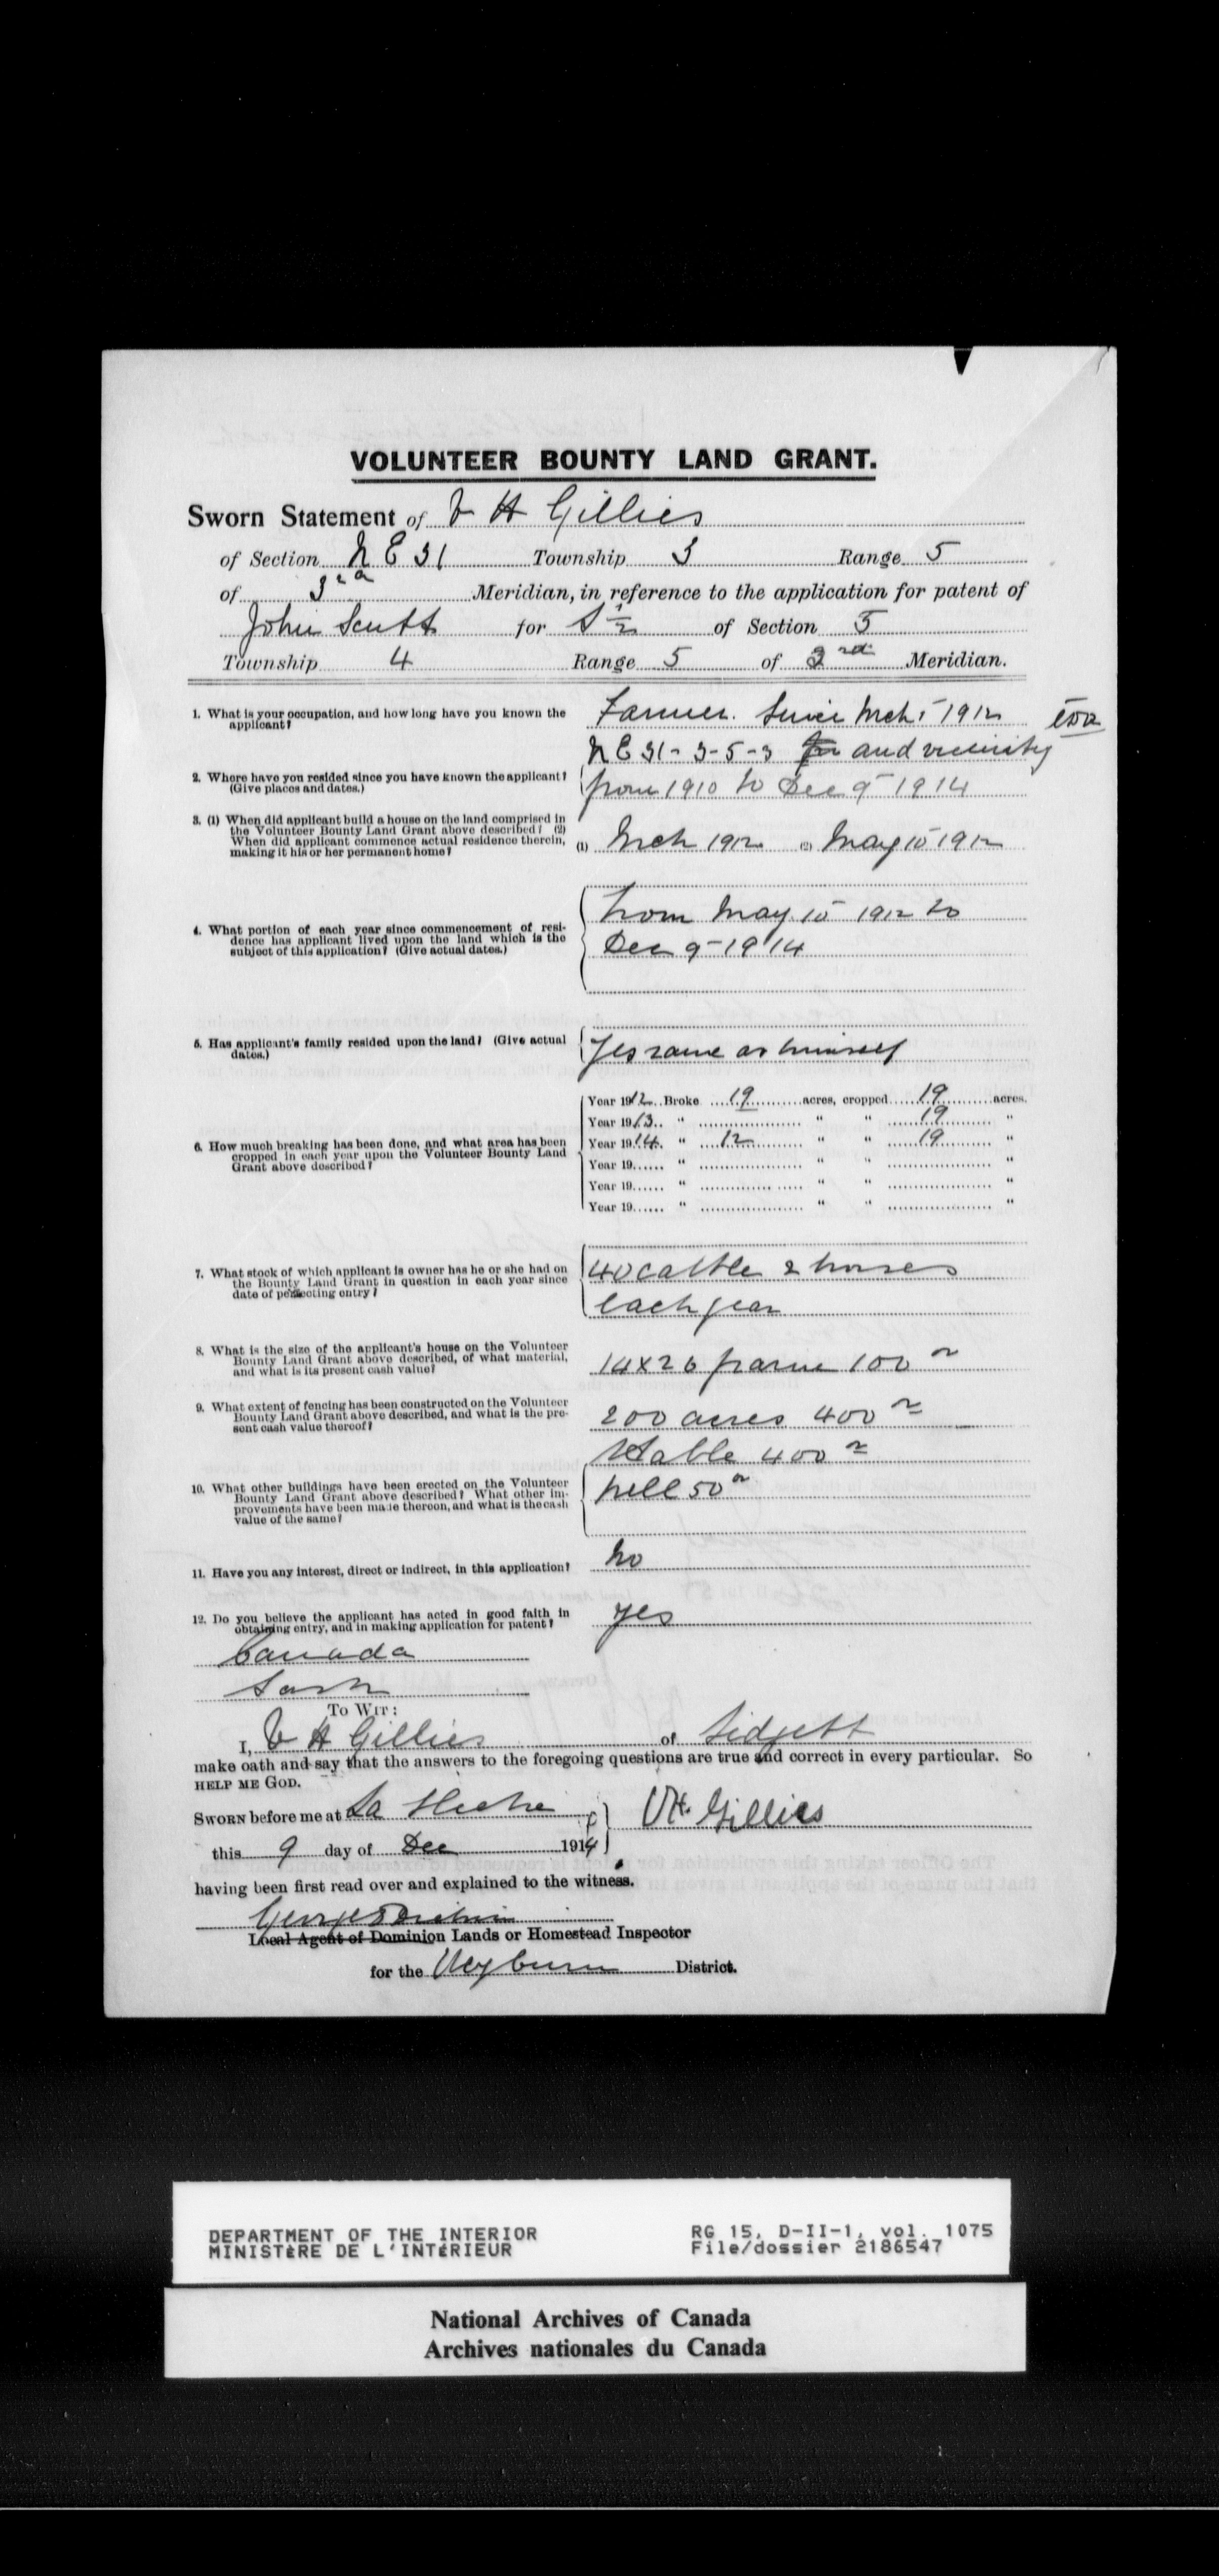 VOLUNTEER BOUNTY LAND GRANT.
Sworn Statement of V H Gillies
of Section N E 31 Township 3 Range 5
of 3rd Meridian, in reference to the application for patent of
John Scutt for S ½ of Section 5
Township 4 Range 5 of 3rd Meridian.
1. What is your occupation, and how long have you known the
applicant?
Farmer. Since Mch 1912
2. Where have you resided since you have known the applicant?
(Give places and dates.)
N E 31-3-5-3 and vicinity
from 1910 to Dec 9 1914
3. (1) When did applicant build a house on the land comprised in
the Volunteer Bounty Land Grant above described? (2)
When did applicant commence actual residence therein,
making it his or her permanent home?
(1) Mch 1912 (2) May 15 1912
4. What portion of each year since commencement of resi-
dence has applicant lived upon the land which is the
subject of this application? (Give actual dates.)
from May 15 1912 to
Dec 9 1914
5. Has applicant's family resided upon the land? (Give actual
dates.)
Yes same as himself
6. How much breaking has been done, and what area has been
cropped in each year upon the Volunteer Bounty Land
Grant above described?
Year 1912 Broke 19 acres, cropped 19 acres.
Year 1913 " " " 19 "
Year 1914 " 12 " " 19 "
Year 19 " " " "
Year 19 " " " "
Year 19 " " " "
7. What stock of which applicant is owner has he or she had on
the Bounty Land Grant in question in each year since
date of perfecting entry?
40 cattle 2 horses
each year
8. What is the size of the applicant's house on the Volunteer
Bounty Land Grant above described, of what material,
and what is its present cash value?
14x26 frame 100
9. What extent of fencing has been constructed on the Volunteer
Bounty Land Grant above described, and what is the pre-
sent cash value thereof?
200 acres 400
10. What other buildings have been erected on the Volunteer
Bounty Land Grant above described? What other im-
provements have been made thereon, and what is the cash
value of the same?
Stable 400
Well 50
11. Have you any interest, direct or indirect, in this application?
No
12. Do you believe the applicant has acted in good faith in
obtaining entry, and in making application for patent?
Yes
Canada
Sask
To Wit:
I, V H Gillies of Lidgett
make oath and say that the answers to the foregoing questions are true and correct in every particular. So
HELP ME GOD.
SWORN before me at
this 9 day of Dec 1914
VH. Gillies
having been first read over and explained to the witness.
George
Local Agent of Dominion Lands or Homestead Inspector
for the Weyburn District.
DEPARTMENT OF THE INTERIOR
MINISTèRE DE L'INTéRIEUR
RG 15, D-II-1, vol. 1075
File/dossier 2186547
National Archives of Canada
Archives nationales du Canada